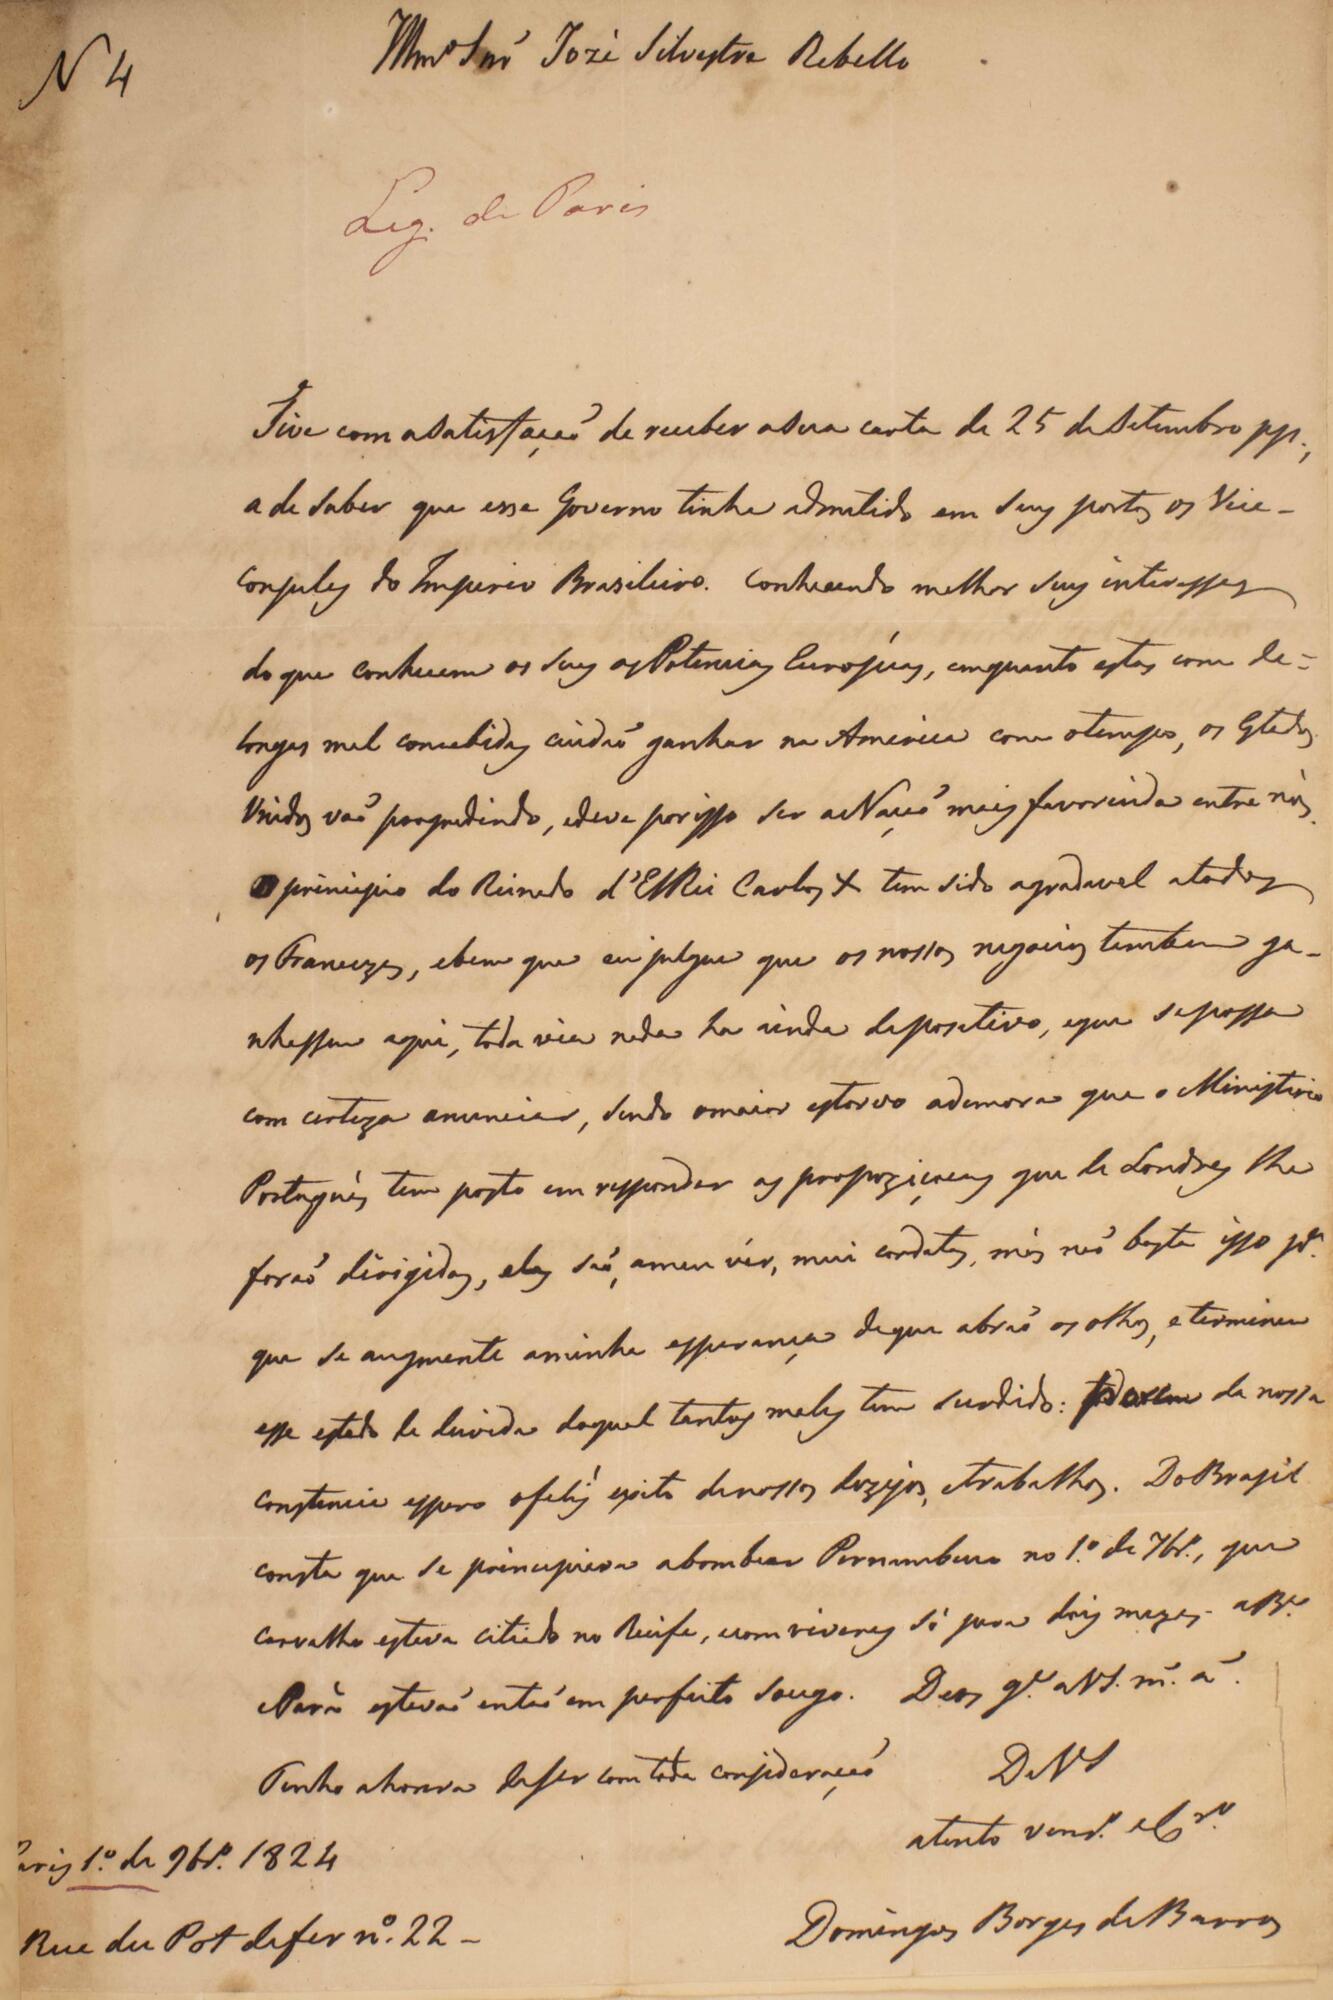 N 4
Illmo Snr Jozé Silvestre Rebello
Leg. de Paris
Tive com a satisfação de receber a sua carta de 25 de Setembro pp.,
a de saber que esse Governo tinha admitido em seus portos os Vice-
Consules do Imperio Brasileiro. Conhecendo melhor seus interesses
do que conhecem os seus as Potencias Européas, emquanto estas com de-
longas mal concebidas cuidão ganhar na America com o tempo, os Estados
Unidos vão progredindo, e deve por isso ser a Nação mais favorecida entre nós.
O principio do Reinado d'El Rei Carlos X tem sido agradavel a todos
os Francezes, e bem que eu julgue que os nossos negocios tambem ga-
nhassem aqui, toda via nada ha ainda de posetivo, e que se possa
com certeza anunciar, sendo o maior estorvo a demora que o Ministerio
Portuguès tem posto em responder as propoziçoens que de Londres lhe
forão dirigidas, elas são, a meu vêr, mui cordatas, más não basta isso pa.
que se augmente a minha esperança de que abrão os olhos, e terminem
esse estado de duvida do qual tantos males tem surdido: porem da nossa
constancia espero o feliz exito de nossos dezejos, e trabalhos. Do Brasil
consta que se principiara a bombear Pernambuco no 1.º de 7br.º, que
Carvalho estava citiado no Recife, e com viveres só para dois mezes. a Ba.
e Pará estavão então em perfeito socego. Deos ge. a V S. m.s a.s
Tenho a honra de ser com toda consideração
De V S
atento vener. e Cro.
Paris 1.º de 9br.º 1824
Rue du Pot de fer n.º 22 -
Domingos Borges de Barros